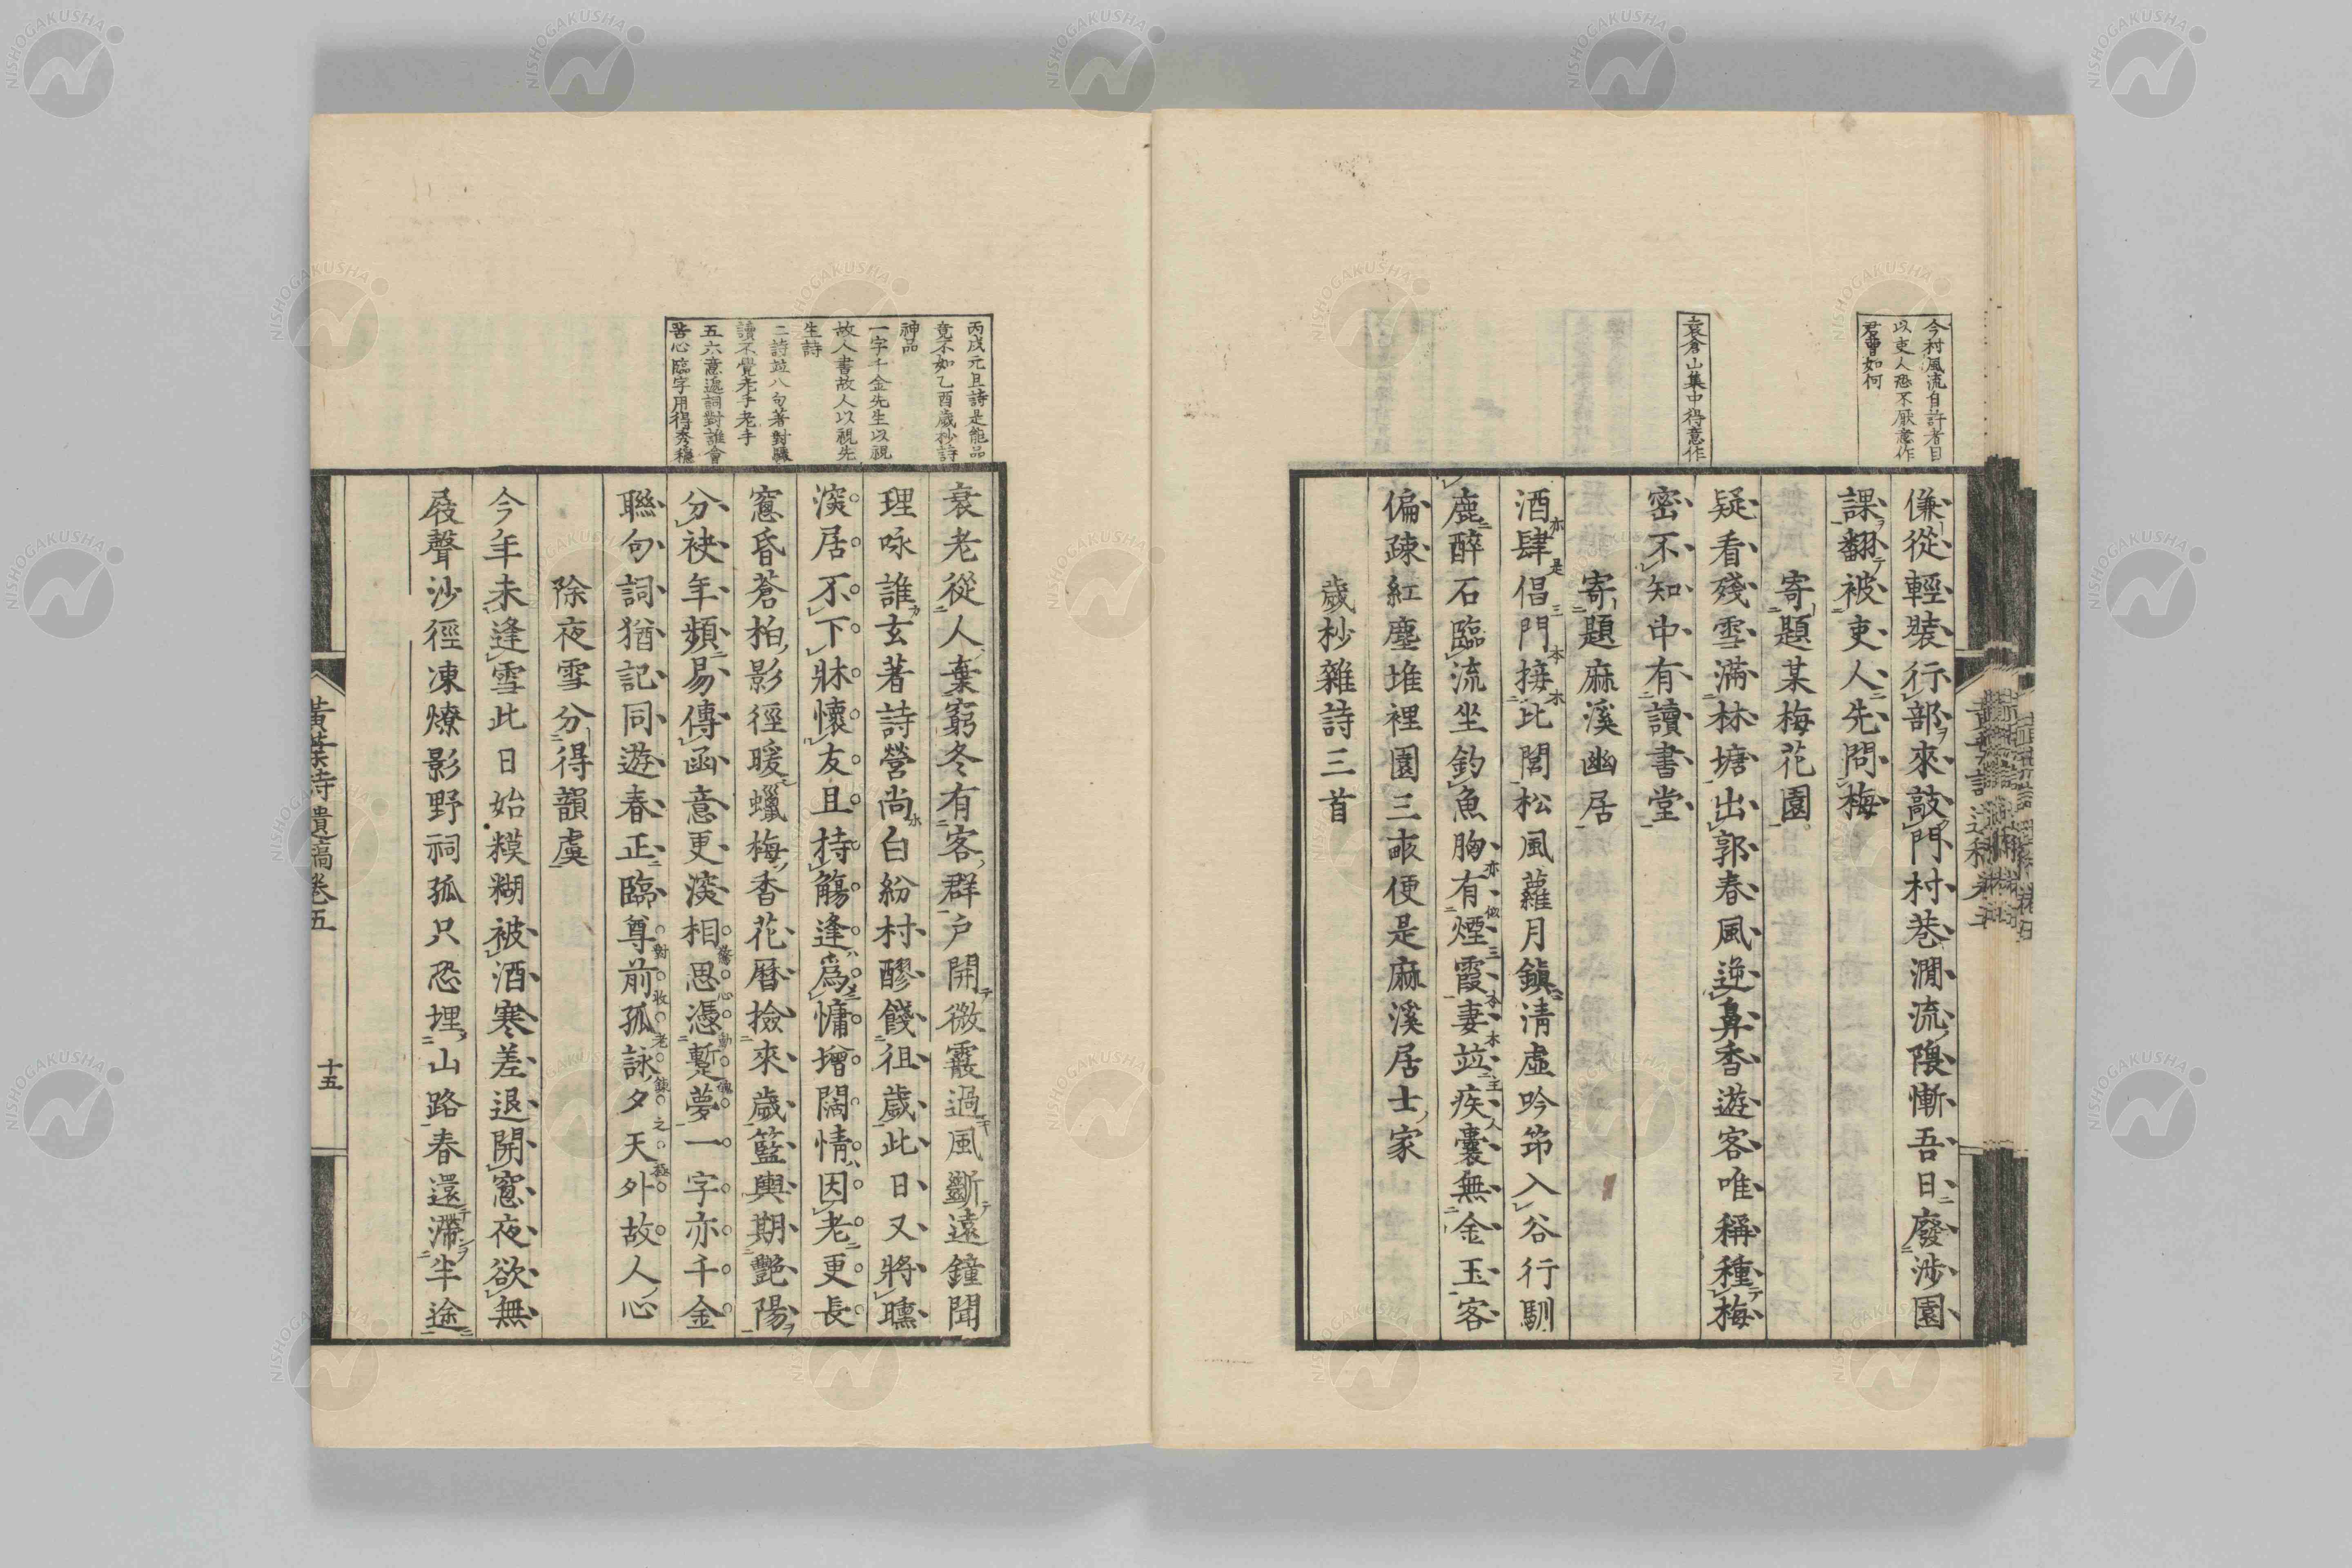 今村風流自許者目
以吏人恐不厭意作
君曹如何
袁倉山集中得意作
傔從輕裝行部來敲門村巷澗流隈慚吾日廢涉園
課翻被吏人先問梅
寄題某梅花園
疑看殘雪滿林塘出郭春風逆鼻香遊客唯稱種梅
密不知中有讀書堂
寄題麻溪幽居
酒肆倡門接比閭松風蘿月鎮清虛吟筇入谷行馴
鹿醉石臨流坐釣魚胸有煙霞妻竝疾囊無金玉客
偏疎紅塵堆裡園三畝便是麻溪居士家
歲杪雜詩三首
丙戌元旦詩是能品
竟不如乙酉歲杪詩
神品
一字千金先生以視
故人書故人以視先
生詩
二詩竝八句著對驟
讀不覺老手老手
五六意遞詞對誰會
苦心臨字用得秀穩
衰老從人棄窮冬有客群戶開微霰過風斷遠鐘聞
理咏誰玄著詩營尚白紛村醪餞徂歲此日又將曛
深居不下牀懷友且持觴逢爲慵增闊情因老更長
窓昏蒼柏影徑暖蠟梅香花曆撿來歲籃輿期艷陽
分袂年頻易傳函意更深相思憑蹔夢一字亦千金
聯句詞猶記同遊春正臨尊前孤詠夕天外故人心
除夜雪分得韻虞
今年未逢雪此日始糢糊被酒寒差退開窓夜欲無
屐聲沙徑凍燎影野祠孤只恐埋山路春還滯半途
黃葉詩遺稿卷五
十五